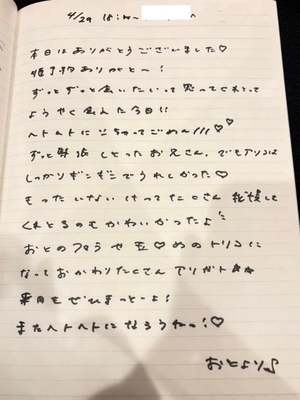 4/29 18:
本日はありがとうございました♡
ありがと〜!
ずっとずっと会いたいって思ってくれてて
ようやく会えた今日に
ヘトヘトに なっちゃってごめん///♡♡
ずっと緊張しとったお兄さん。でも
しっかりギンギンでうれしかった♡
もったいないけってたくさん我慢して
くれとるのもかわいかったよ
おとの 2
なっておかわりたくさんアリガト☆☆
来月もぜひまっとーよ!
またヘトヘトになろうねっ!♡
おとより♪